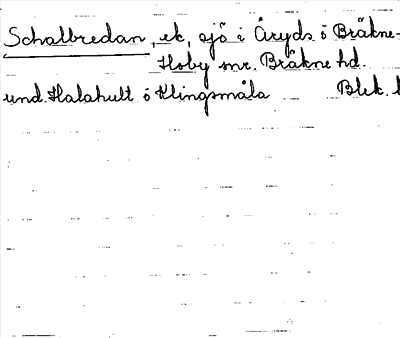 Schalbredan, ek, sjö i Åryds o Bräkne-
Hoby snr. Bräkne hd.
und. Halahult o Klingsmåla Blek. l